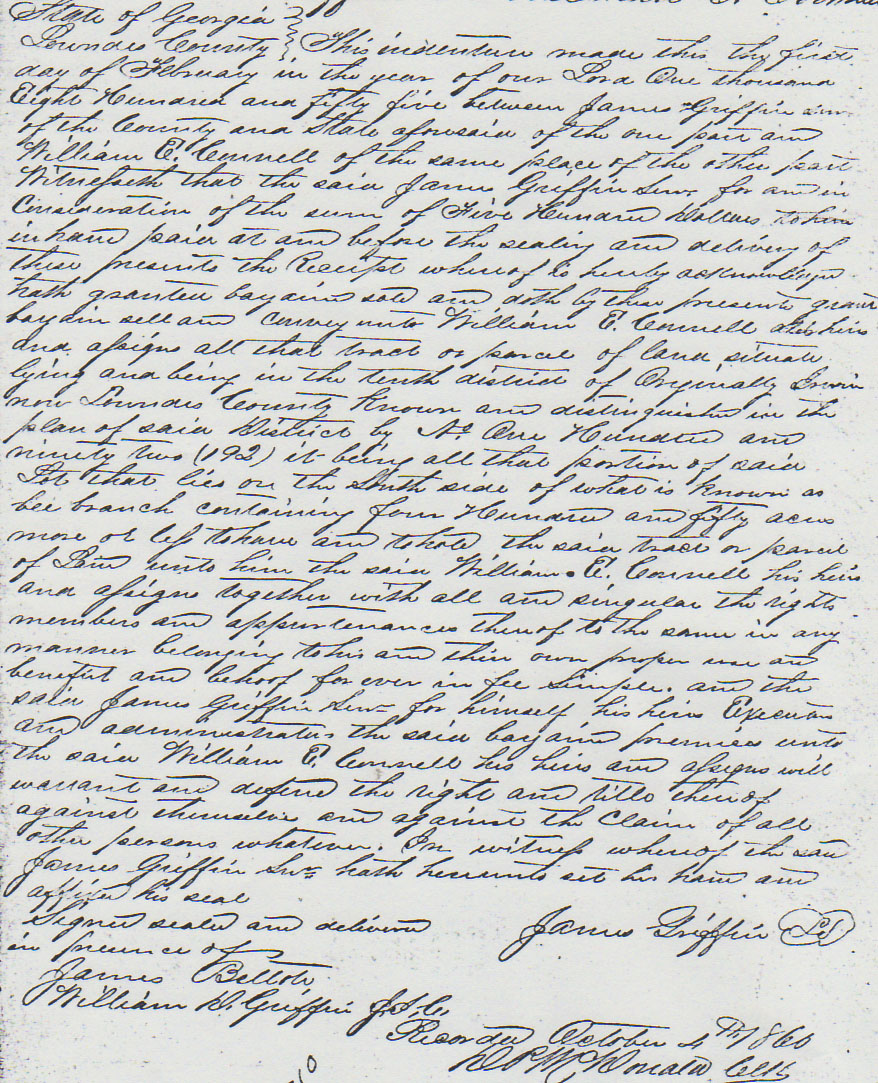 State of Georgia }
Lowndes County } This indenture made this the first
day of February in the year of our Lord One thousand
Eight Hundred and fifty five between James Griffin Senr
of the County and State aforesaid of the one part and
William E. Connell of the same place of the other part
Witnesseth that the said James Griffin Senr for and in
Consideration of the sum of Five Hundred Dollars to him
in hand paid at and before the sealing and delivery of
these presents the Receipt whereof is hereby acknowledged
hath granted bargained sold and doth by these presents grant
bargain sell and convey unto William E. Connell his heirs
and assigns all that tract or parcel of land situate
lying and being in the tenth district of Originally Irwin
now Lowndes County Known and distinguished in the
plan of said District by No One Hundred and
ninety two (192) it being all that portion of said
Lot that lies on the South side of what is known as
bee branch containing four Hundred and fifty acres
more or less to have and to hold the said tract or parcel
of Land unto him the said William E. Connell his heirs
and assigns together with all and singular the rights
members and appurtenances thereof to the same in any
manner belonging to his and their own proper use and
benefit and behoof for ever in fee Simple. and the
said James Griffin Senr for himself his heirs Executors
and administrators the said bargained premises unto
the said William E. Connell his heirs and assigns will
warrant and defend the right and title thereof
against themselves and against the Claim of all
other persons whatever. In witness whereof the said
James Griffin Senr hath hereunto set his hand and
affixed his seal
Signed sealed and delivered
James Griffin LS
in presence of
James
William D. Griffin J.I.C.
Recorded October 4th 1860
McDonald Clk
10